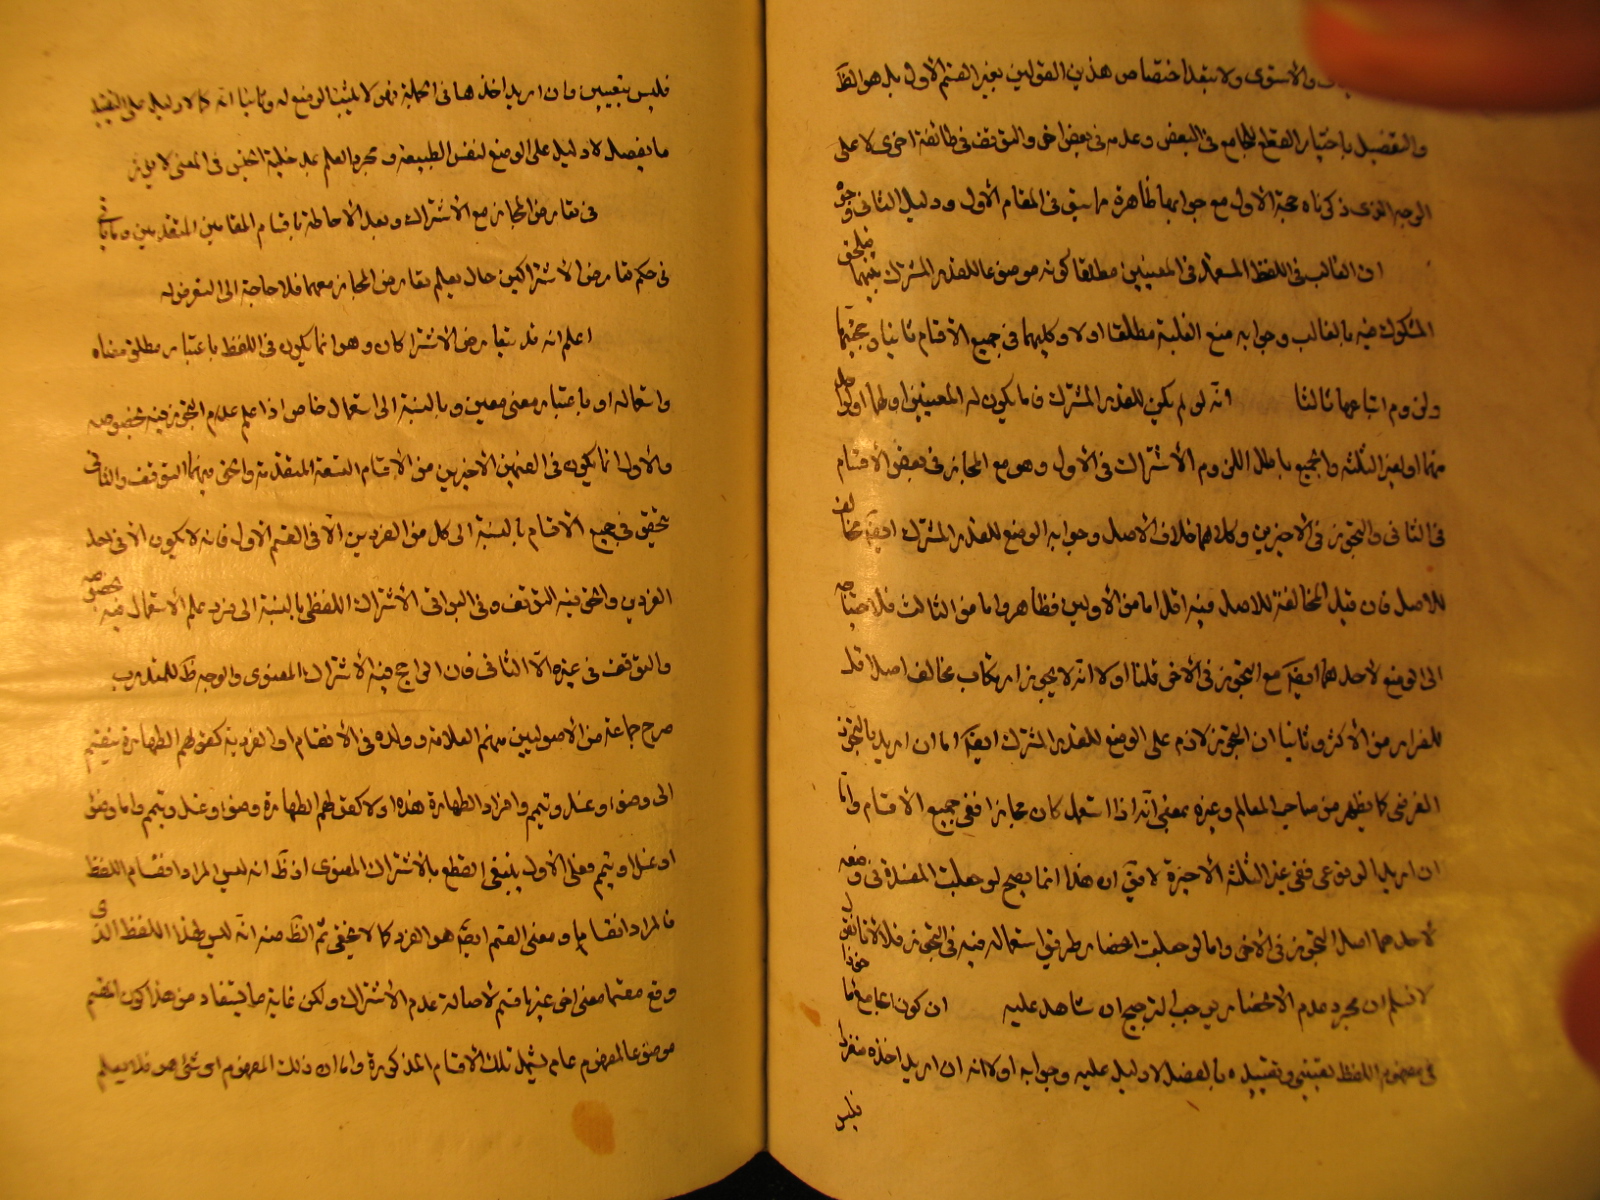 والاستوى ولا يتقدا ختصاص هذين القولين بغير القسم الاول بل هو الظ
والتفصيل باختيار القطع الجامع فى البعض وعدمه فى بعض اخر والتوقف فى طائفة اخرى لا على
الوجه الذى ذكرناه حجة الاول مع جوابها ظاهرة مما سبق فى المقام الاول ودليل الثانى وجوه
ان الغالب فى اللفظ المستعمل فى المعنيين مطلقا كونه موضوعا للقدر المشترك بينهما فيلحق
المشكوك فيه بالغالب وجوابه منع الغلبة مطلقا اولا وكليهما فى جميع الاقسام ثانيا وحجيتها
ولزوم اتباعها ثالثا انه لو لم يكن للقدر المشترك فاما يكون له المعنيين او لهما او لواحد
منهما او لغير الثلثة والجميع باطل للزوم الاشتراك فى الاول وهو مع المجاز فى بعض الاقسام
فى الثانى والتجوز فى الاخيرين وكلاهما خلاف الاصل وجوابه الوضع للقدر المشترك ايضا مخالف
للاصل فان قيل المخالفة للاصل فيه اقل اما من الاولين فظاهر واما من الثالث فلاحتياجه
الى الوضع لاحدهما ايضا مع التجوز فى الاخر قلنا اولا انه لا يجوز ارتكاب مخالف اصلا قل
للفرار من الاكثر وثانيا ان التجوز لازم على الوضع للقدر المشترك ايضا اما ان اريد بالتجوز
الفرضى كما يظهر من صاحب المعالم وغيره بمعنى انه اذا استعمل كان مجازا ففى جميع الاقسام واما
ان اريد الوقوعى ففى غير الثلثة الاخيرة لا يق ان هذا انما يصح لو جعلت المفسدة فى وضعه
لاحدهما اصل التجوز فى الاخر واما لو جعلت انحصار طريق استعماله فيه فى التجوز فلا لانا نقول
لا نسلم ان مجرد عدم الانحصار يوجب الترجيح ان شاهد عليه ان كون الجامع ماخوذا
فى مفهوم اللفظ يقينى وتقييده بالفصل لا دليل عليه وجوابه اولا انه ان اريد اخذه منفردا
فليس
فليس بتعيين وان اريد اخذها فى الجملة فهو لا يثبت الوضع له وثانيا انه كما لا دليل على التقييد
ما يفصل لا دليل على الوضع لنفس الطبيعة ومجرد العلم بمدخلية الجنس فى المعنى لا يلزم
فى تعارض المجاز مع الاشتراك وبعد الاحاطة باقسام المقامين المتقدمين وما ياتى
فى حكم تعارض الاشتراكين حال يعلم تعارض المجاز معهما فلا حاجة الى التعرض له
اعلم انه قد يتعارض الاشتراكان وهو انما يكون فى اللفظ باعتبار مطلق معناه
واستعماله او باعتبار معنى معين وبالنسبة الى استعمال خاص اذا علم عدم التجوز فيه بخصوصه
والاول انما يكون فى القسمين الاخيرين من الاقسام التسعة المتقدمة والحق فيهما التوقف والثانى
يتحقق فى جميع الاقسام بالنسبة الى كل من الفردين الا فى القسم الاول فانه لا يكون الا فى احد
الفردين والحق فيه التوقف وفى البواقى الاشتراك اللفظى بالنسبة الى فرد علم الاستعمال فيه بخصوصه
والتوقف فى غيره الا الثانى فان الراجح فيه الاشتراك المعنوى والوجه ظ للمتدرب
صرح جماعة من الاصوليين منهم العلامة وولده فى الانقسام او الفردية كقولهم الطهارة ينقسم
الى وضوء وغسل وتيمم وافراد الطهارة هذه او لا كقولهم الطهارة وضوء وغسل وتيمم واما وضوء
او غسل او تيمم فعلى الاول ينبغى القطع بالاشتراك المعنوى اذ ظ انه ليس المراد اقسام اللفظ
فالمراد انقسامها ومعنى القسم ايضا هو الفرد كما لا يخفى ثم الظ منه انه ليس لهذا اللفظ الذى
وقع مقسما معنى اخر غيرها قسم لاصالة عدم الاشتراك ولكن غاية ما يستفاد من هذا كون المقسم
موضوعا لمفهوم عام يشمل تلك الاقسام المذكورة واما ان ذلك المفهوم اى شئ هو فلا يعلم